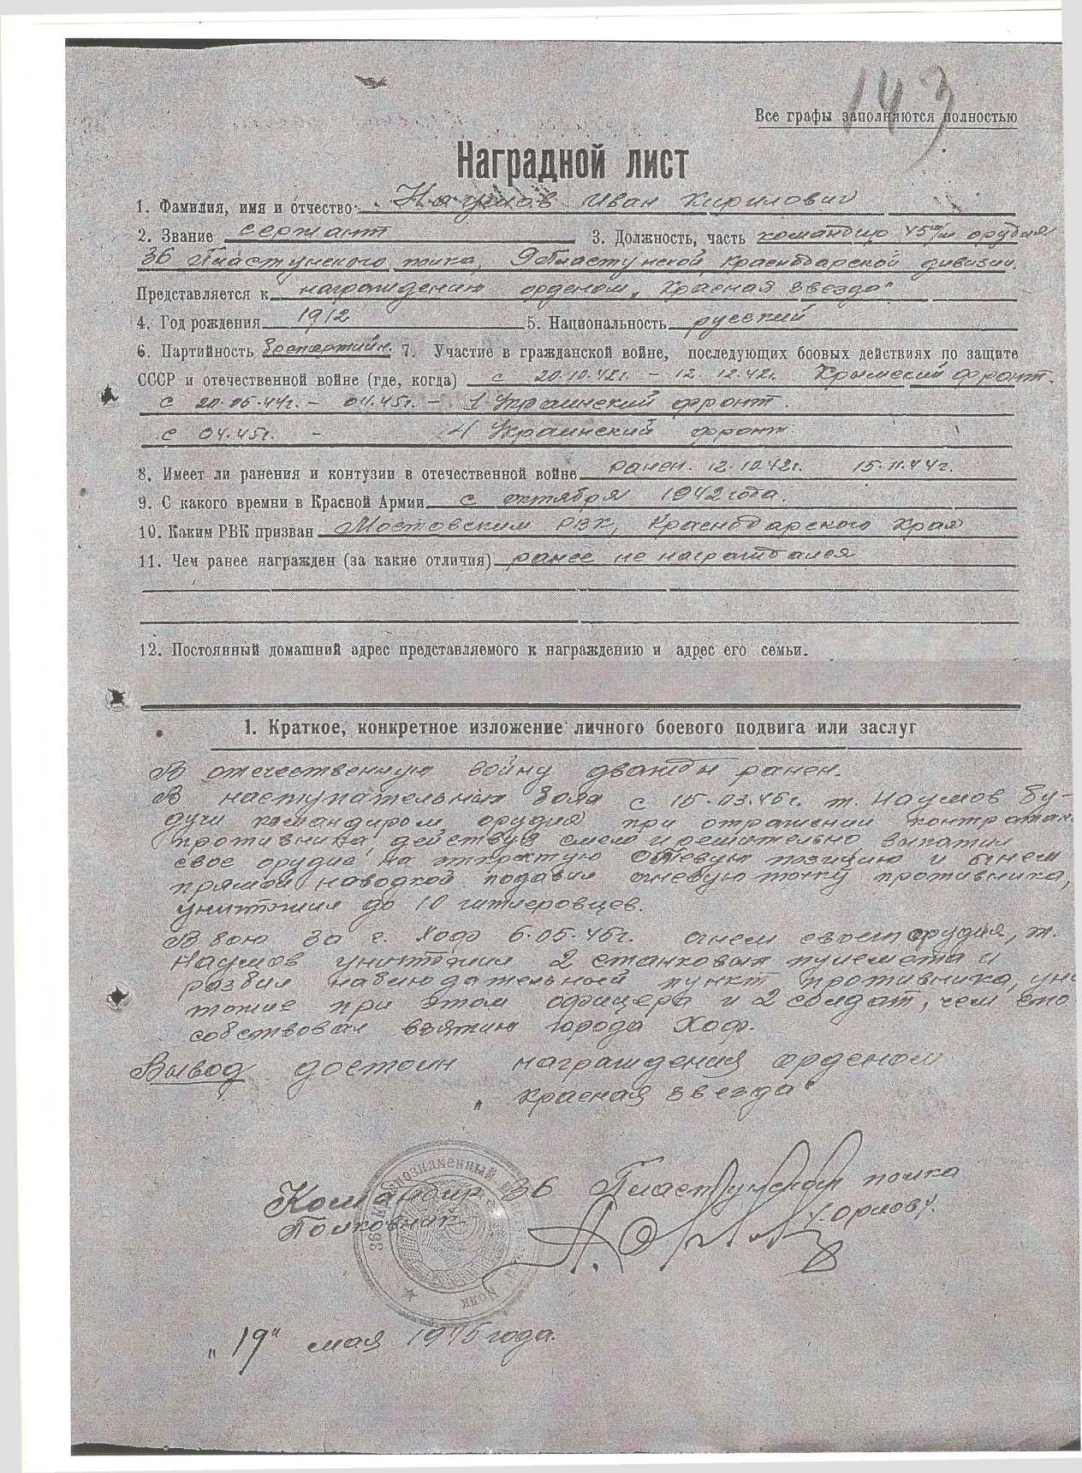 143
Все графы заполняются полностью
Наградной лист
1. Фамилия, имя и отчество Наумов Иван Кирилович
2. Звание сержант 3. Должность, часть командир 45 м/м орудия
36 Пластунского полка, 9 Пластунской Краснодарской дивизии.
Представляется к награждению орденом „Красная звезда"
4. Год рождения 1912 5. Национальность русский
6. Партийность Беспартийн. 7. Участие в гражданской войне, последующих боевых действиях по защите
СССР и отечественной войне (где, когда) с 20.10.42г. - 12.12.42г. Крымский фронт.
с 20.05.44г. - 04.45г. - 1 Украинский фронт.
с 04.45г. - 4 Украинский фронт
8. Имеет ли ранения и контузии в отечественной войне ранен. 12.10.42г. 15.11.44г.
9. С какого времни в Красной Армии с октября 1942 года.
10. Каким РВК призван Мостовским РВК, Краснодарского Края
11. Чем ранее награжден (за какие отличия) ранее не награждался
12. Постоянный домашний адрес представляемого к награждению и адрес его семьи.
1. Краткое, конкретное изложение личного боевого подвига или заслуг
В отечественную войну дважды ранен.
В наступательных боях с 15.03.45г. т. Наумов бу-
дучи командиром орудия при отражении контратак
противника, действуя смело и решительно выкатил
свое орудие на открытую огневую позицию и огнем
прямой наводкой подавил огневую точку противника,
уничтожил до 10 гитлеровцев.
В бою за г. Коф 6.05.45г. огнем своего орудия, т.
Наумов уничтожил 2 станковых пулемета и
разбил наблюдательный пункт противника, уни
тожив при этом офицера и 2 солдат, чем спо
собствовал взятию города Коф.
Вывод достоин награждения орденом
„Красная звезда"
Командир 36 Пластунского полка
Полковник /Орлов/.
„19" мая 1945 года.